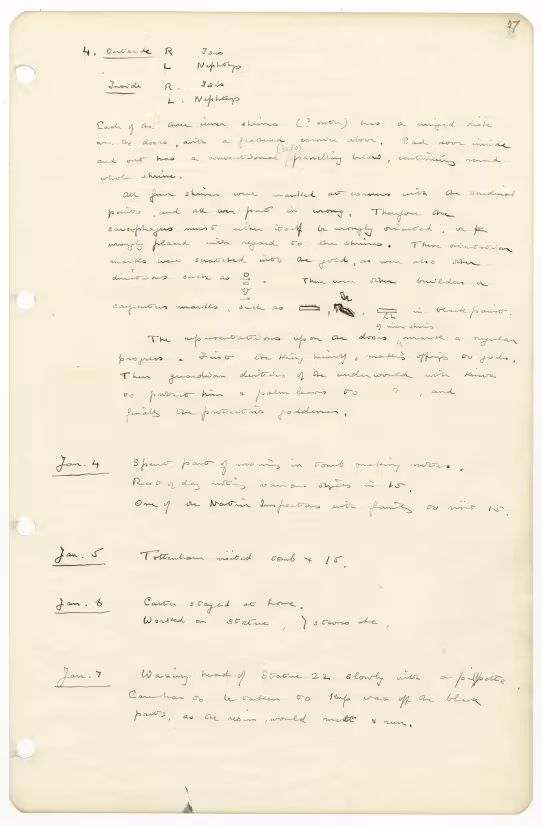 47
4. Outside R Isis
L Nephthys
Inside R. Isis
L. Nephthys
Each of the three inner shrines (? outer) has a winged disk
on the doors, with a feathered cornice above. Each door inside
(? also)
and out has a conventional panelling below, continuing round
whole shrine.
All four shrines were marked at corners with the cardinal
points, and all were put in wrong. Therefore the
sarcophagus must either itself be wrongly oriented, or be
wrongly placed with regard to the shrines. These orientation
marks were scratched into the gold, as were also other
directions such as . There were other builders or
carpenters marks, such as , , in black paint.
of inner shrines
The representations upon the doors mark a regular
progress. First the King himself, making offrgs to gods.
Then guardian deities of the underworld with knives
to protect him & palm leaves to ? , and
finally the protective goddesses.
Jan. 4 Spent part of morning in tomb making notes.
Rest of day noting various objects in 15.
One of the Native Inspectors with family to visit 15.
Jan. 5 Tottenham visited tomb & 15.
Jan. 6 Carter stayed at home.
Worked on statue,
Jan. 7 Waxing head of Statue 22 slowly with a pipette.
Care has to be taken to keep wax off the black
parts, as the resin would melt & run.